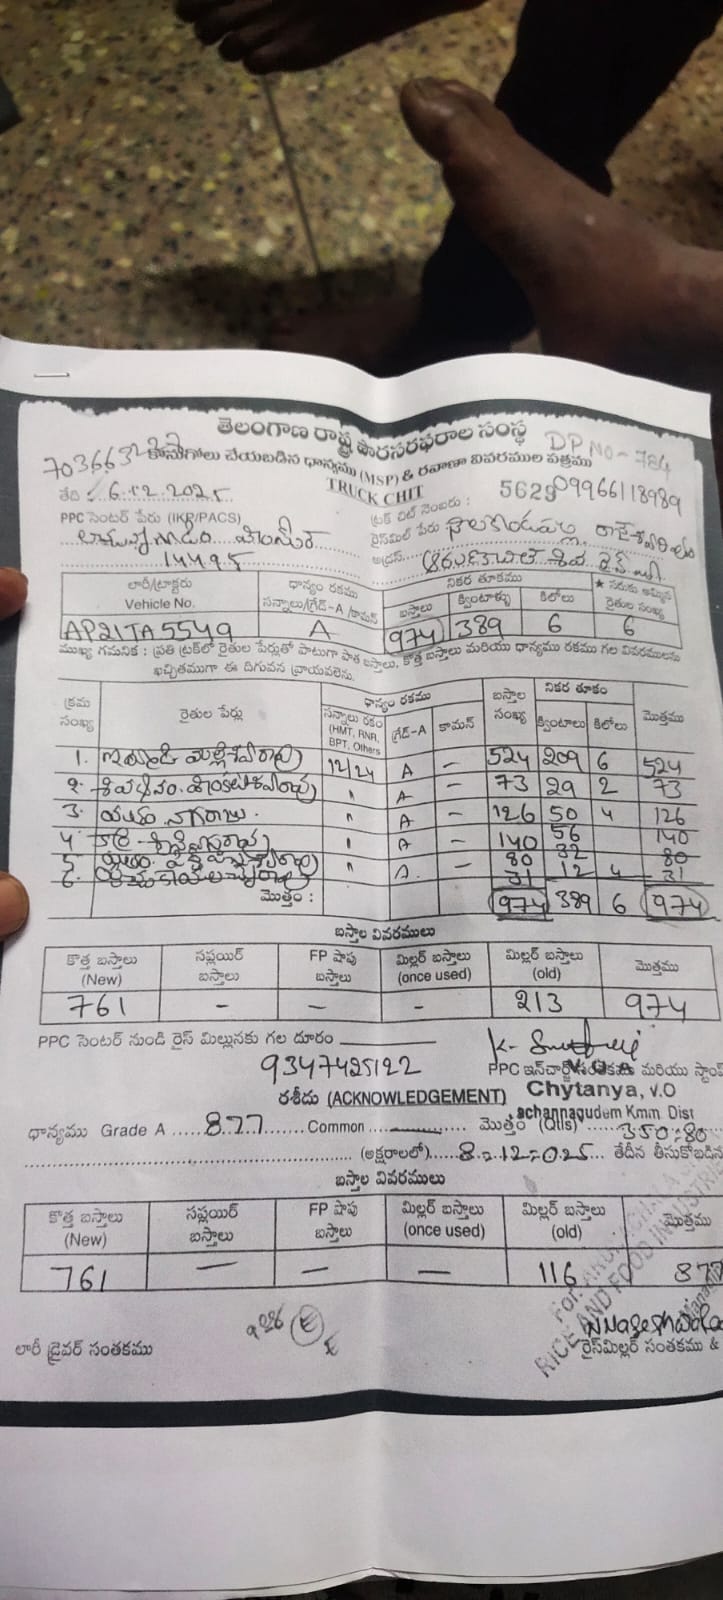 తెలంగాణ రాష్ట్ర పౌరసరఫరాల సంస్థ
DP No - 784
కొనుగోలు చేయబడిన ధాన్యము (MSP) & రవాణా వివరముల పత్రము
TRUCK CHIT
తేది : 6.12.2025
ట్రక్ చిట్ నెంబరు : 5629 09966118989
PPC సెంటర్ పేరు (IKP/PACS)
రైస్‌మిల్ పేరు
14495
అడ్రస్
లారీ/ట్రాక్టరు Vehicle No.
ధాన్యం రకము సన్నాలు/గ్రేడ్-A /కామన్
నికర తూకము
బస్తాలు క్వింటాళ్ళు కిలోలు
★ సరుకు అమ్మిన రైతుల సంఖ్య
AP21TA5549 A 974 389 6 6
ముఖ్య గమనిక : ప్రతి ట్రక్‌లో రైతుల పేర్లుతో పాటుగా పాత బస్తాలు, కొత్త బస్తాలు మరియు ధాన్యము రకము గల వివరములను
ఖచ్చితముగా ఈ దిగువన వ్రాయవలెను.
క్రమ సంఖ్య
రైతుల పేర్లు
ధాన్యం రకము
సన్నాలు రకం (HMT, RNR, BPT, Others
గ్రేడ్-A
కామన్
బస్తాల సంఖ్య
నికర తూకం
క్వింటాలు కిలోలు
మొత్తము
1. 12/24 A - 524 209 6 524
2. " A - 73 29 2 73
3. " A - 126 50 4 126
4 " A - 140 56 140
5 " A - 80 32 80
6 31 12 4 31
మొత్తం : 974 389 6 974
బస్తాల వివరములు
కొత్త బస్తాలు (New)
సప్లయిర్ బస్తాలు
FP షాపు బస్తాలు
మిల్లర్ బస్తాలు (once used)
మిల్లర్ బస్తాలు (old)
మొత్తము
761 - - - 213 974
PPC సెంటర్ నుండి రైస్ మిల్లునకు గల దూరం
9347425122
PPC ఇన్‌చార్జ్ సంతకము మరియు స్టాంప్
V.O A
రశీదు (ACKNOWLEDGEMENT)
Chytanya, v.O
achannagudem Kmm Dist
ధాన్యము Grade A 877 Common మొత్తం (Qtls) 350=80
(అక్షరాలలో) 8-12-2025 తేదీన తీసుకోబడిన
బస్తాల వివరములు
కొత్త బస్తాలు (New)
సప్లయిర్ బస్తాలు
FP షాపు బస్తాలు
మిల్లర్ బస్తాలు (once used)
మిల్లర్ బస్తాలు (old)
మొత్తము
761 - - - 116 877
RICE AND FOOD INDUSTR
లారీ డ్రైవర్ సంతకము
రైస్‌మిల్లర్ సంతకము &